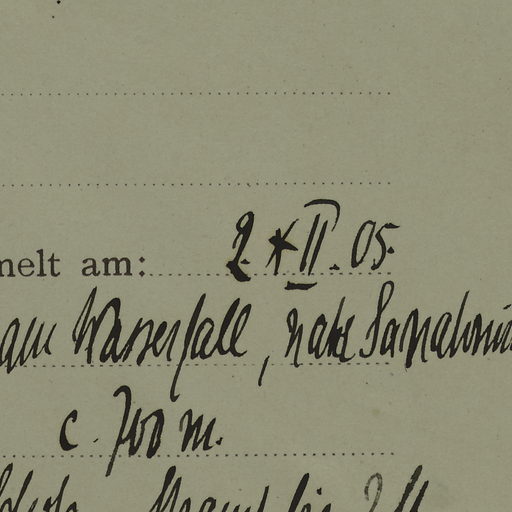 melt am: 2. XII. 05.
am Wasserfall, nahe Sanatorium
c. 700 m.